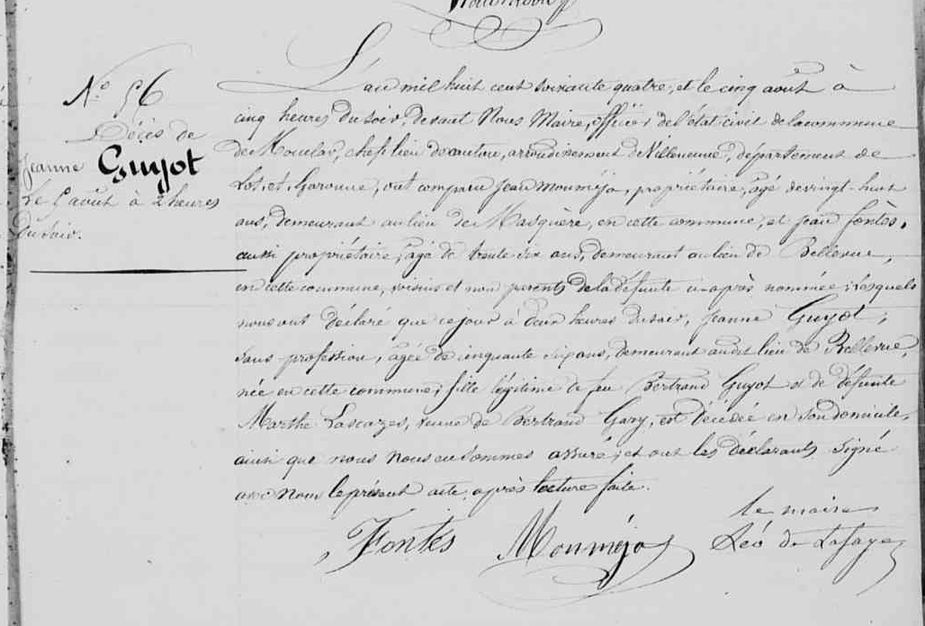 N.° 56
Décès de
Jeanne Guyot
le 5 août à 2 heures
du soir.
L'an mil huit cent soixante quatre, et le cinq août à
cinq heures du soir, devant Nous Maire, officier de l'état civil de la commune
de Monclar, chef-lieu de canton, arrondissement de Villeneuve, département de
Lot-et-Garonne, ont comparu Jean Mouméjà, propriétaire, âgé de vingt-huit
ans, demeurant au lieu de Masquère, en cette commune, et Jean Fontès,
aussi propriétaire, âgé de trente six ans, demeurant au lieu de Bellevue,
en cette commune, voisins et non parents de la défunte ci-après nommée; lesquels
nous ont déclaré que ce jour à deux heures du soir, Jeanne Guyot,
sans profession, âgée de cinquante six ans, demeurant audit lieu de Bellevue,
née en cette commune; fille légitime de feu Bertrand Guyot et de défunte
Marthe Lascazes, veuve de Bertrand Gary, est décédée en son domicile,
ainsi que nous nous en sommes assuré; et ont les déclarants signé
avec Nous le présent acte, après lecture faite.
Fontès Mouméja le maire
Léo de Lafaye